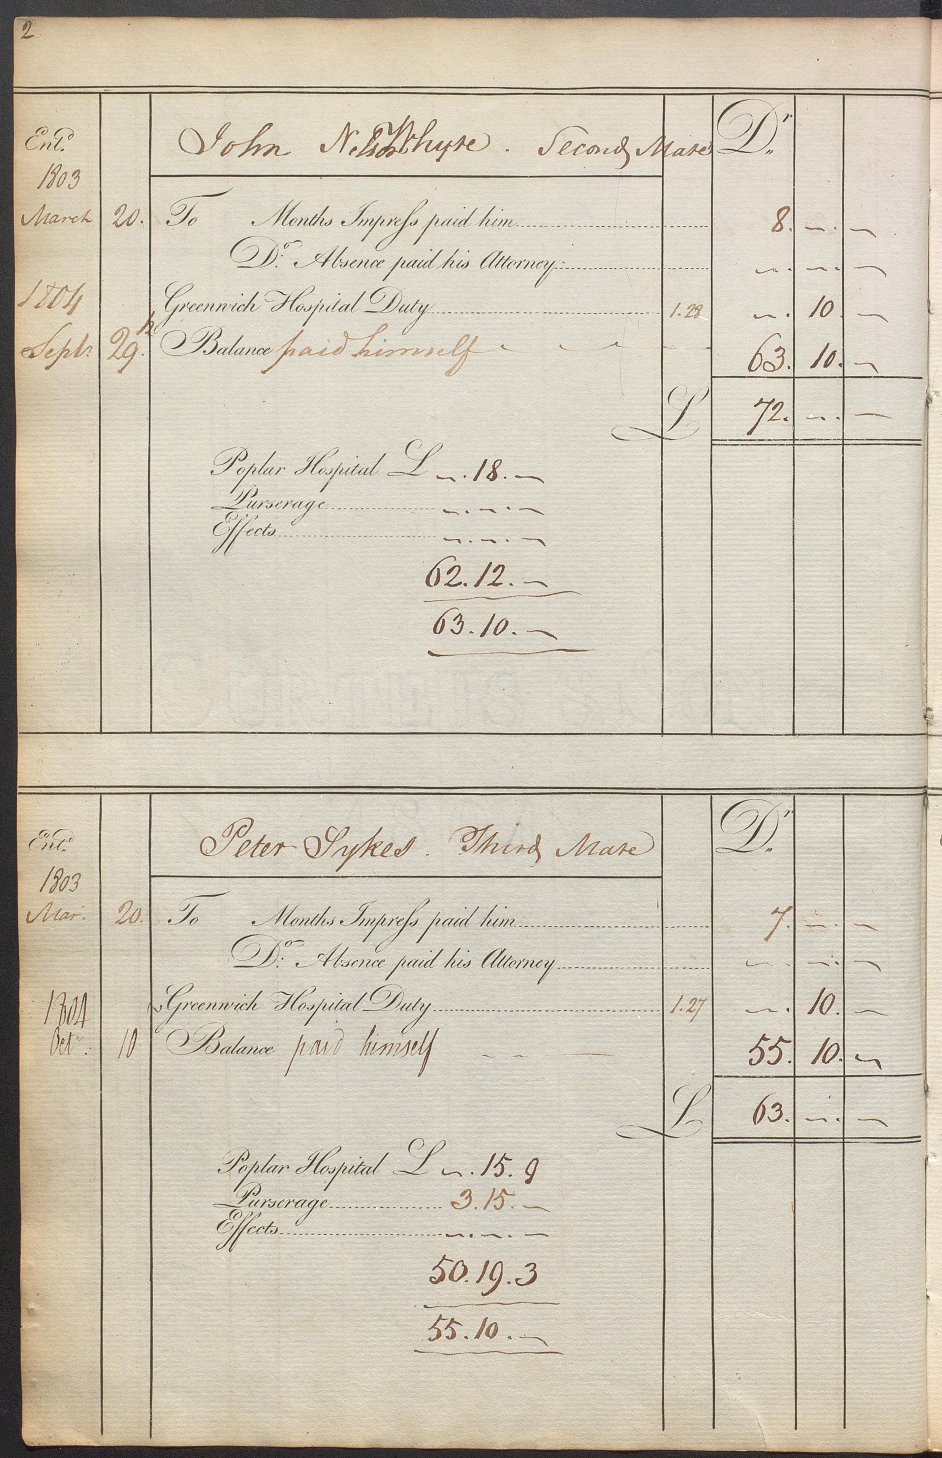 2
Entd. John Nelson Whyte. Second Mate Dr.
1803
March 20. To Months Impress paid him 8. ~. ~
Do. Absence paid his Attorney ~. ~. ~
Greenwich Hospital Duty 1.28 ~. 10. ~
1804
Septr. 29th. Balance paid himself 63. 10. ~
L 72. ~. ~
Poplar Hospital L ~. 18. ~
Purserage ~. ~. ~
Effects ~. ~. ~
62. 12. ~
63. 10. ~
Entd. Peter Sykes. Third Mate Dr.
1803
Mar. 20. To Months Impress paid him 7. ~. ~
Do. Absence paid his Attorney ~. ~. ~
1804 Greenwich Hospital Duty 1.27 ~. 10. ~
Octr. 10 Balance paid himself 55. 10. ~
L 63. ~. ~
Poplar Hospital L ~. 15. 9
Purserage 3. 15. ~
Effects ~. ~. ~
50. 19. 3
55. 10. ~